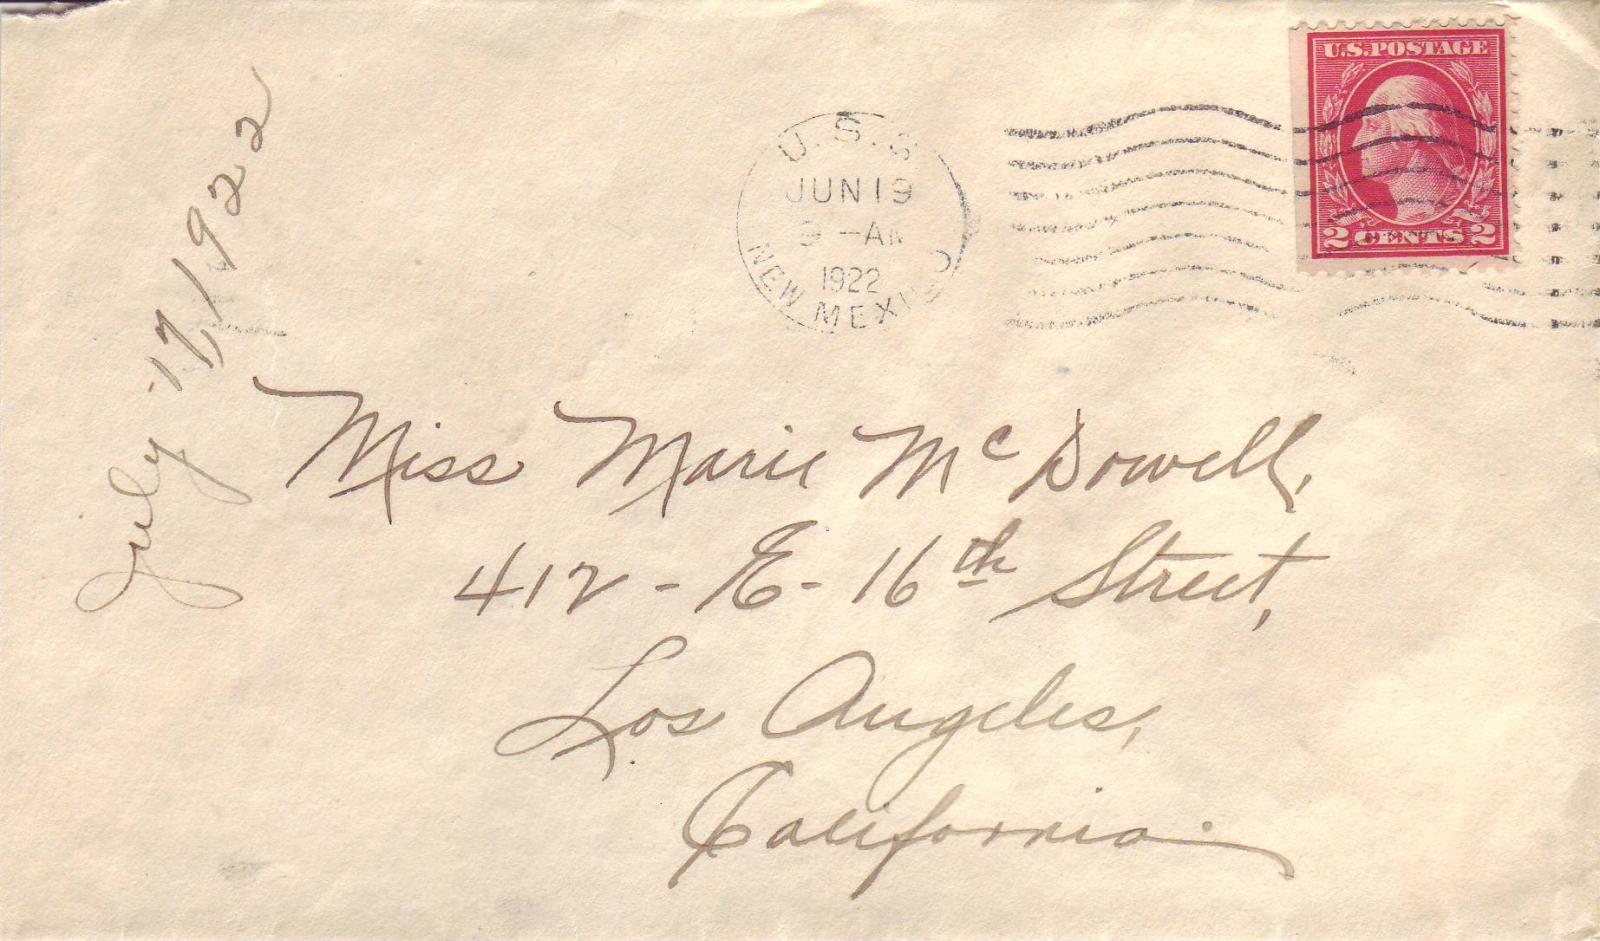 U.S.POSTAGE
2 CENTS 2
U.S.S.
JUN 19
-AM
1922
NEW MEXICO
July 17, 1922
Miss Marie Mc Dowell,
412 - E - 16th Street,
Los Angeles,
California.